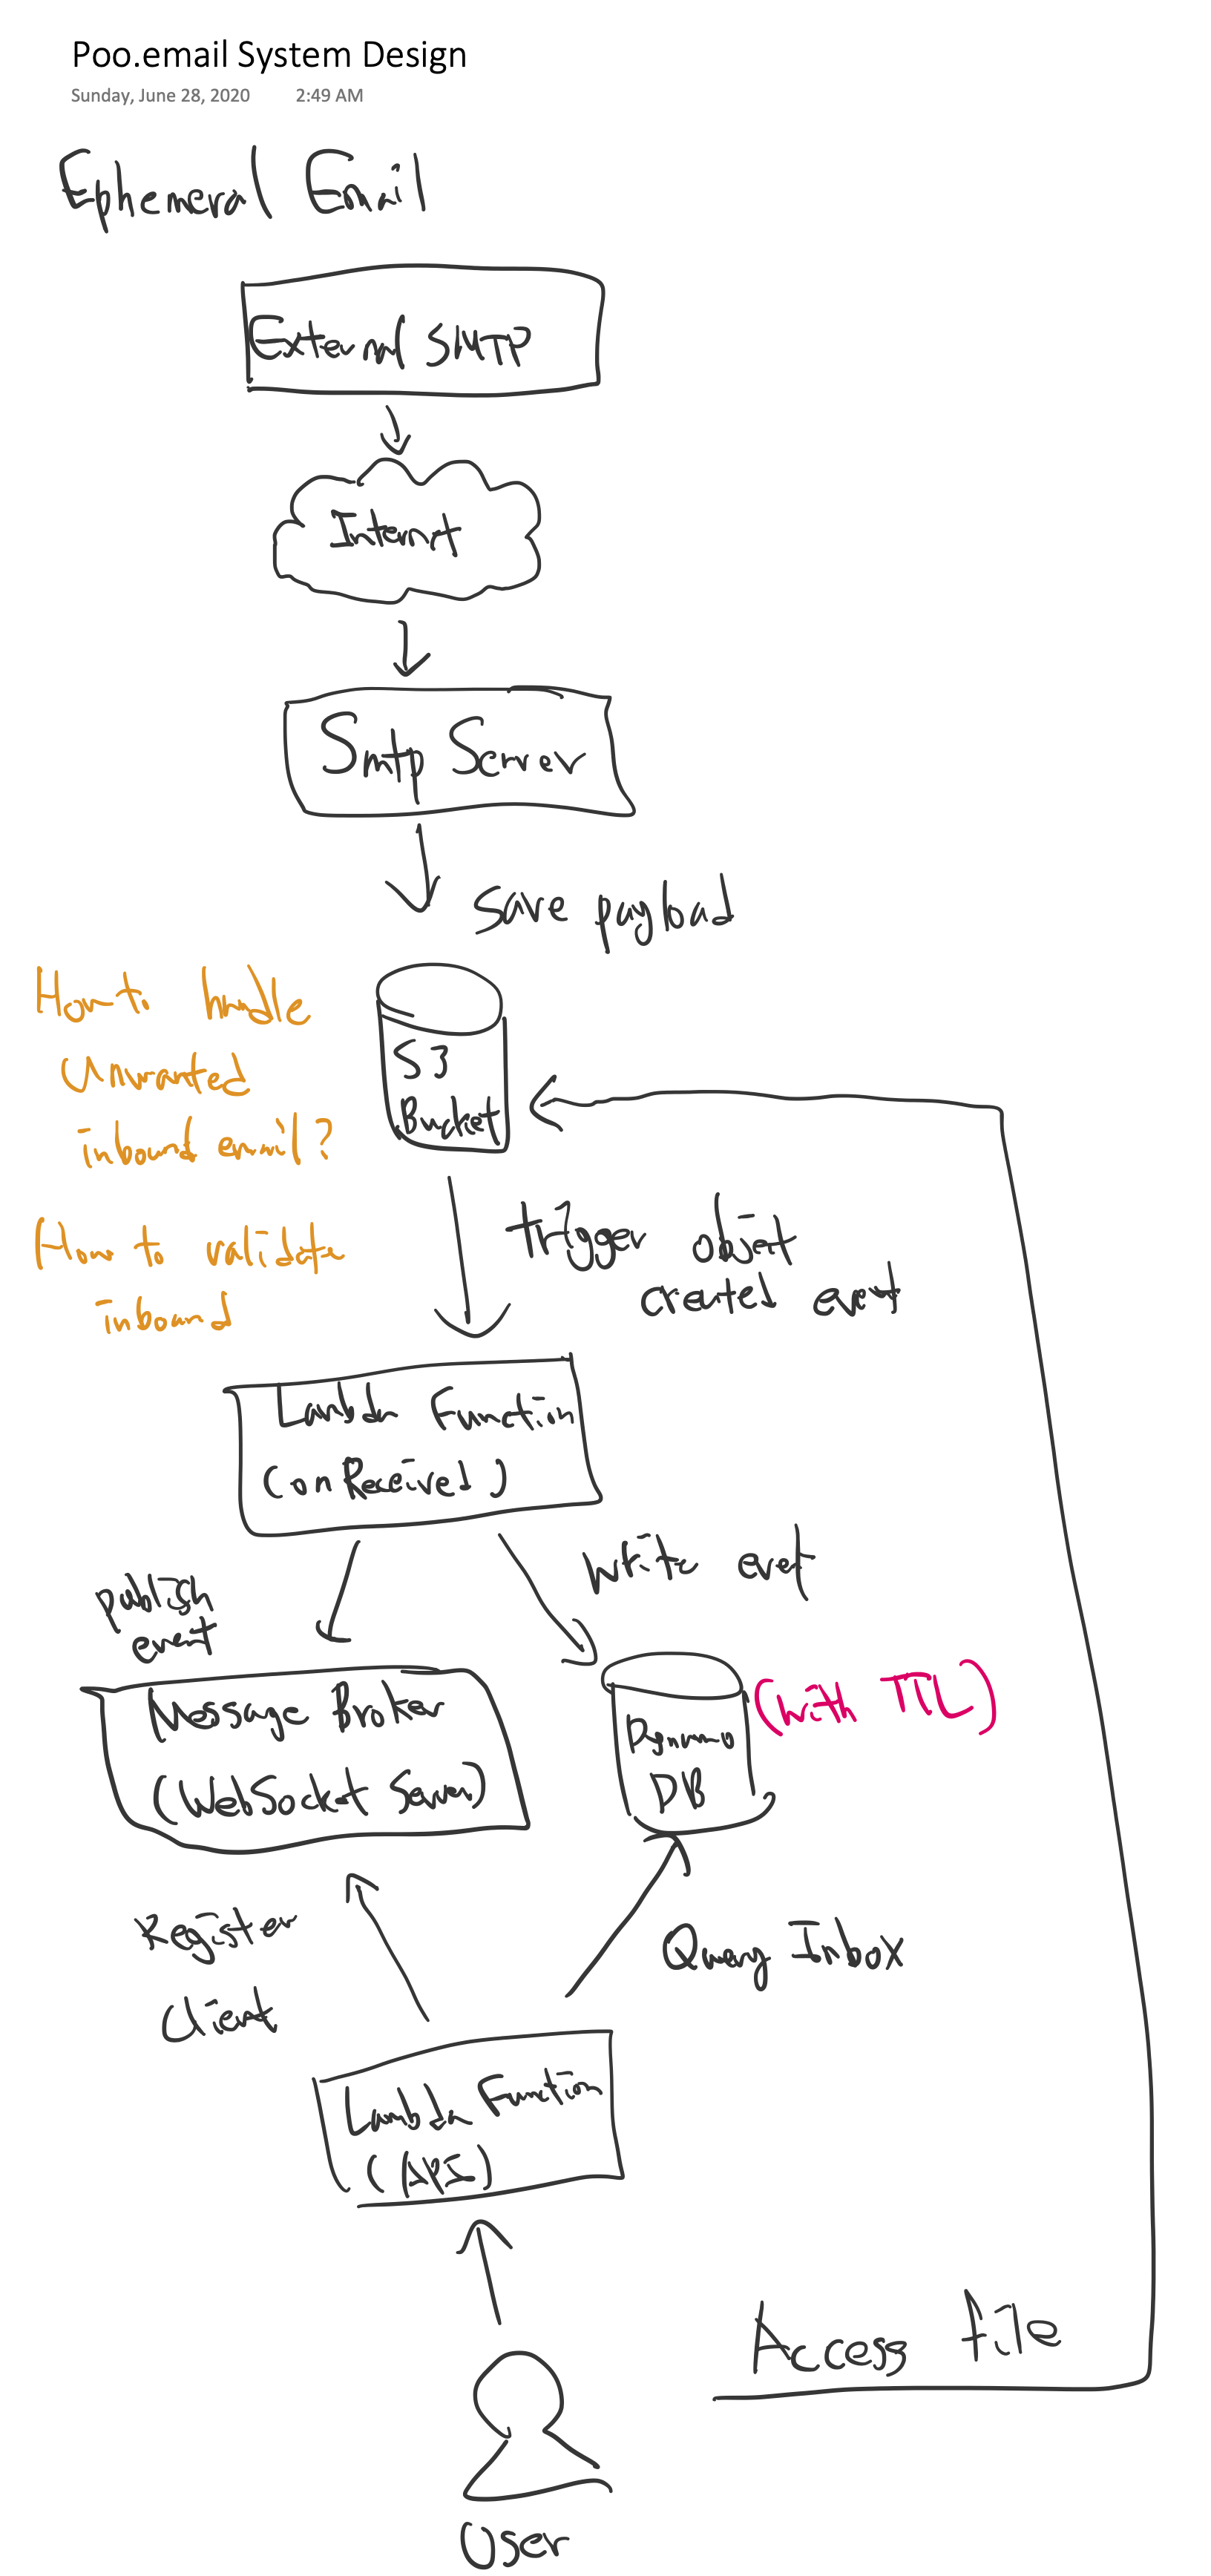 Poo.email System Design
Sunday, June 28, 2020 2:49 AM
Ephemeral Email
External SMTP
Internet
Smtp Server
Save payload
How to handle
unwanted
inbound email?
S3
Bucket
How to validate
inbound
trigger object
created event
Lambda Function
(onReceived)
write event
publish
event
Message Broker
(WebSocket Server)
(with TTL)
Dynamo
DB
Register
Client
Query Inbox
Lambda Function
(API)
Access file
User